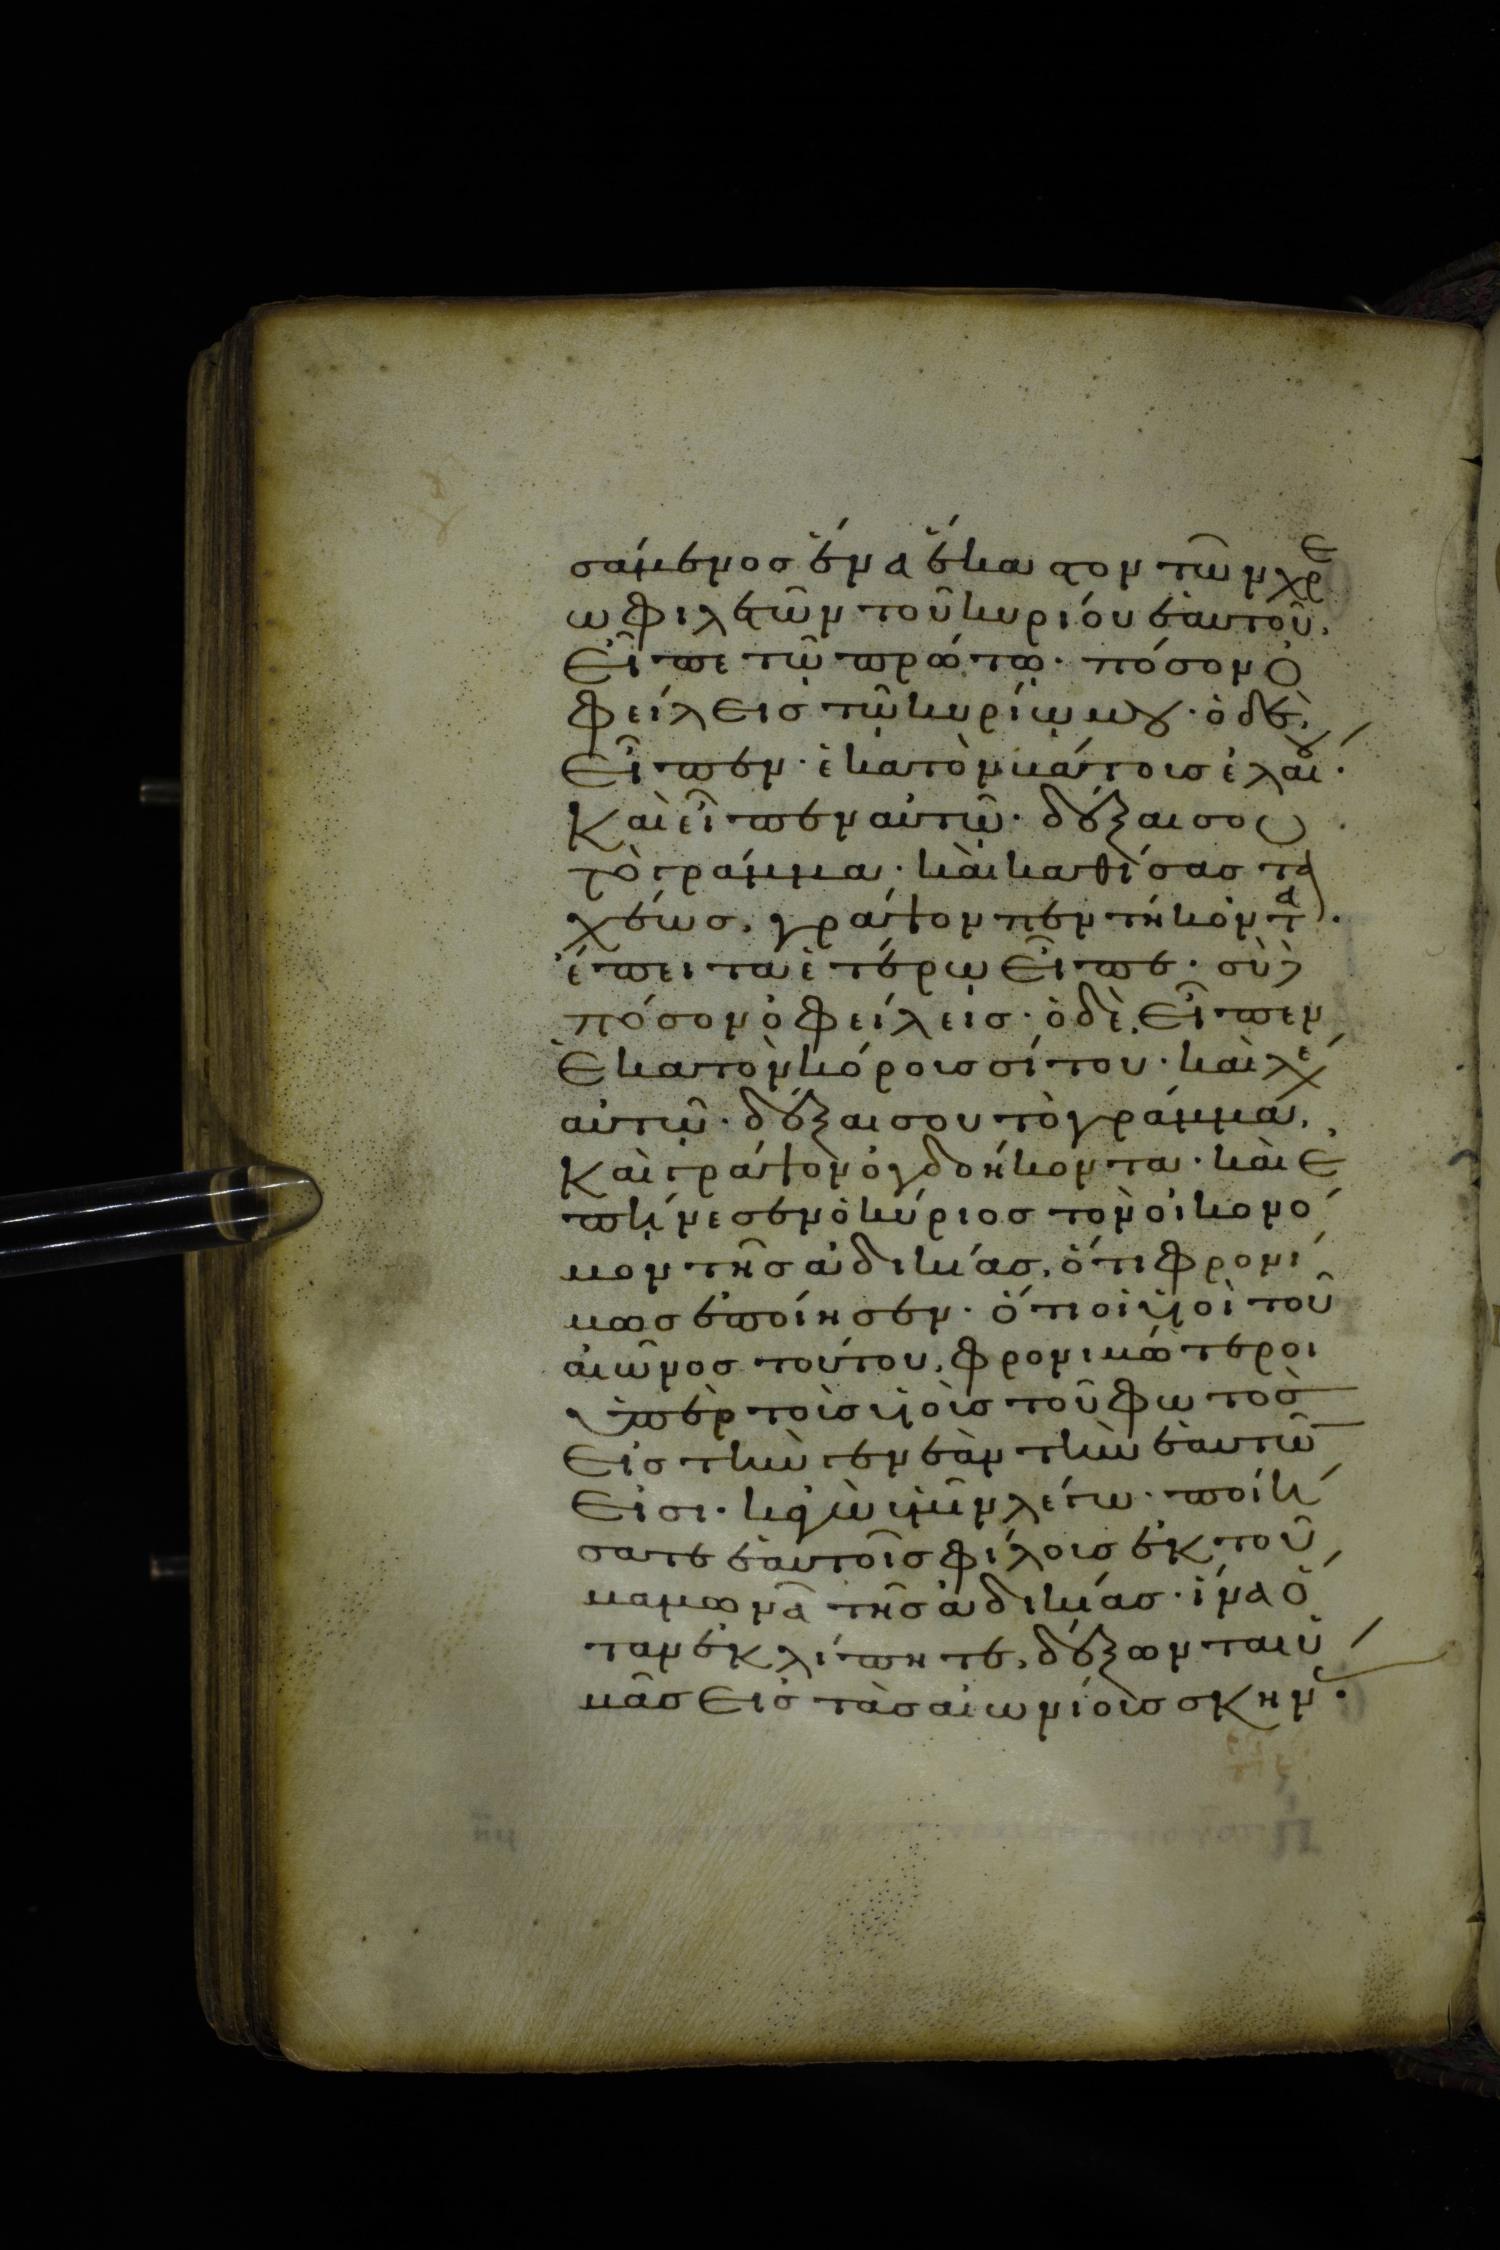 σάμενος ἕνα ἕκαστον τῶν χρε
ωφιλετῶν τοῦ κυρίου ἑαυτοῦ,
εἶπε τῷ πρώτῳ· πόσον ὀ
φείλεις τῷ κυρίῳ μου· ὁ δὲ,
εἶπεν· ἑκατὸν κάτοις ἐλαίου·
καὶ εἶπεν αὐτῷ· δέξαι σου
τὸ γράμμα· καὶ καθίσας τα
χέως, γράψον πεντήκοντα·
ἔπειτα ἑτέρω εἶπε· σὺ
πόσον ὀφείλεις· ὁ δὲ, εἶπεν
ἑκατὸν κόροις σίτου· καὶ λέγει
αὐτῷ· δέξαι σου τὸ γράμμα,
καὶ γράψον ὀγδοήκοντα· καὶ ἐ
πήνεσεν ὁ κύριος τὸν οἰκονό
μον τῆς ἀδικίας, ὅτι φρονί
μως ἐποίησεν· ὅτι οἱ υἱοὶ τοῦ
αἰῶνος τούτου, φρονιμώτεροι
ὑπὲρ τοὺς υἱοὺς τοῦ φωτὸς
εἰς τὴν γενεὰν τὴν ἑαυτῶν
εἰσι· κἀγὼ ὑμῖν λέγω· ποιή
σατε ἑαυτοῖς φίλοις ἐκ τοῦ
μαμωνᾶ τῆς ἀδικίας· ἵνα ὅ
ταν ἐκλίπητε, δέξωνται ὑ
μᾶς εἰς τὰς αἰωνίοις σκην·